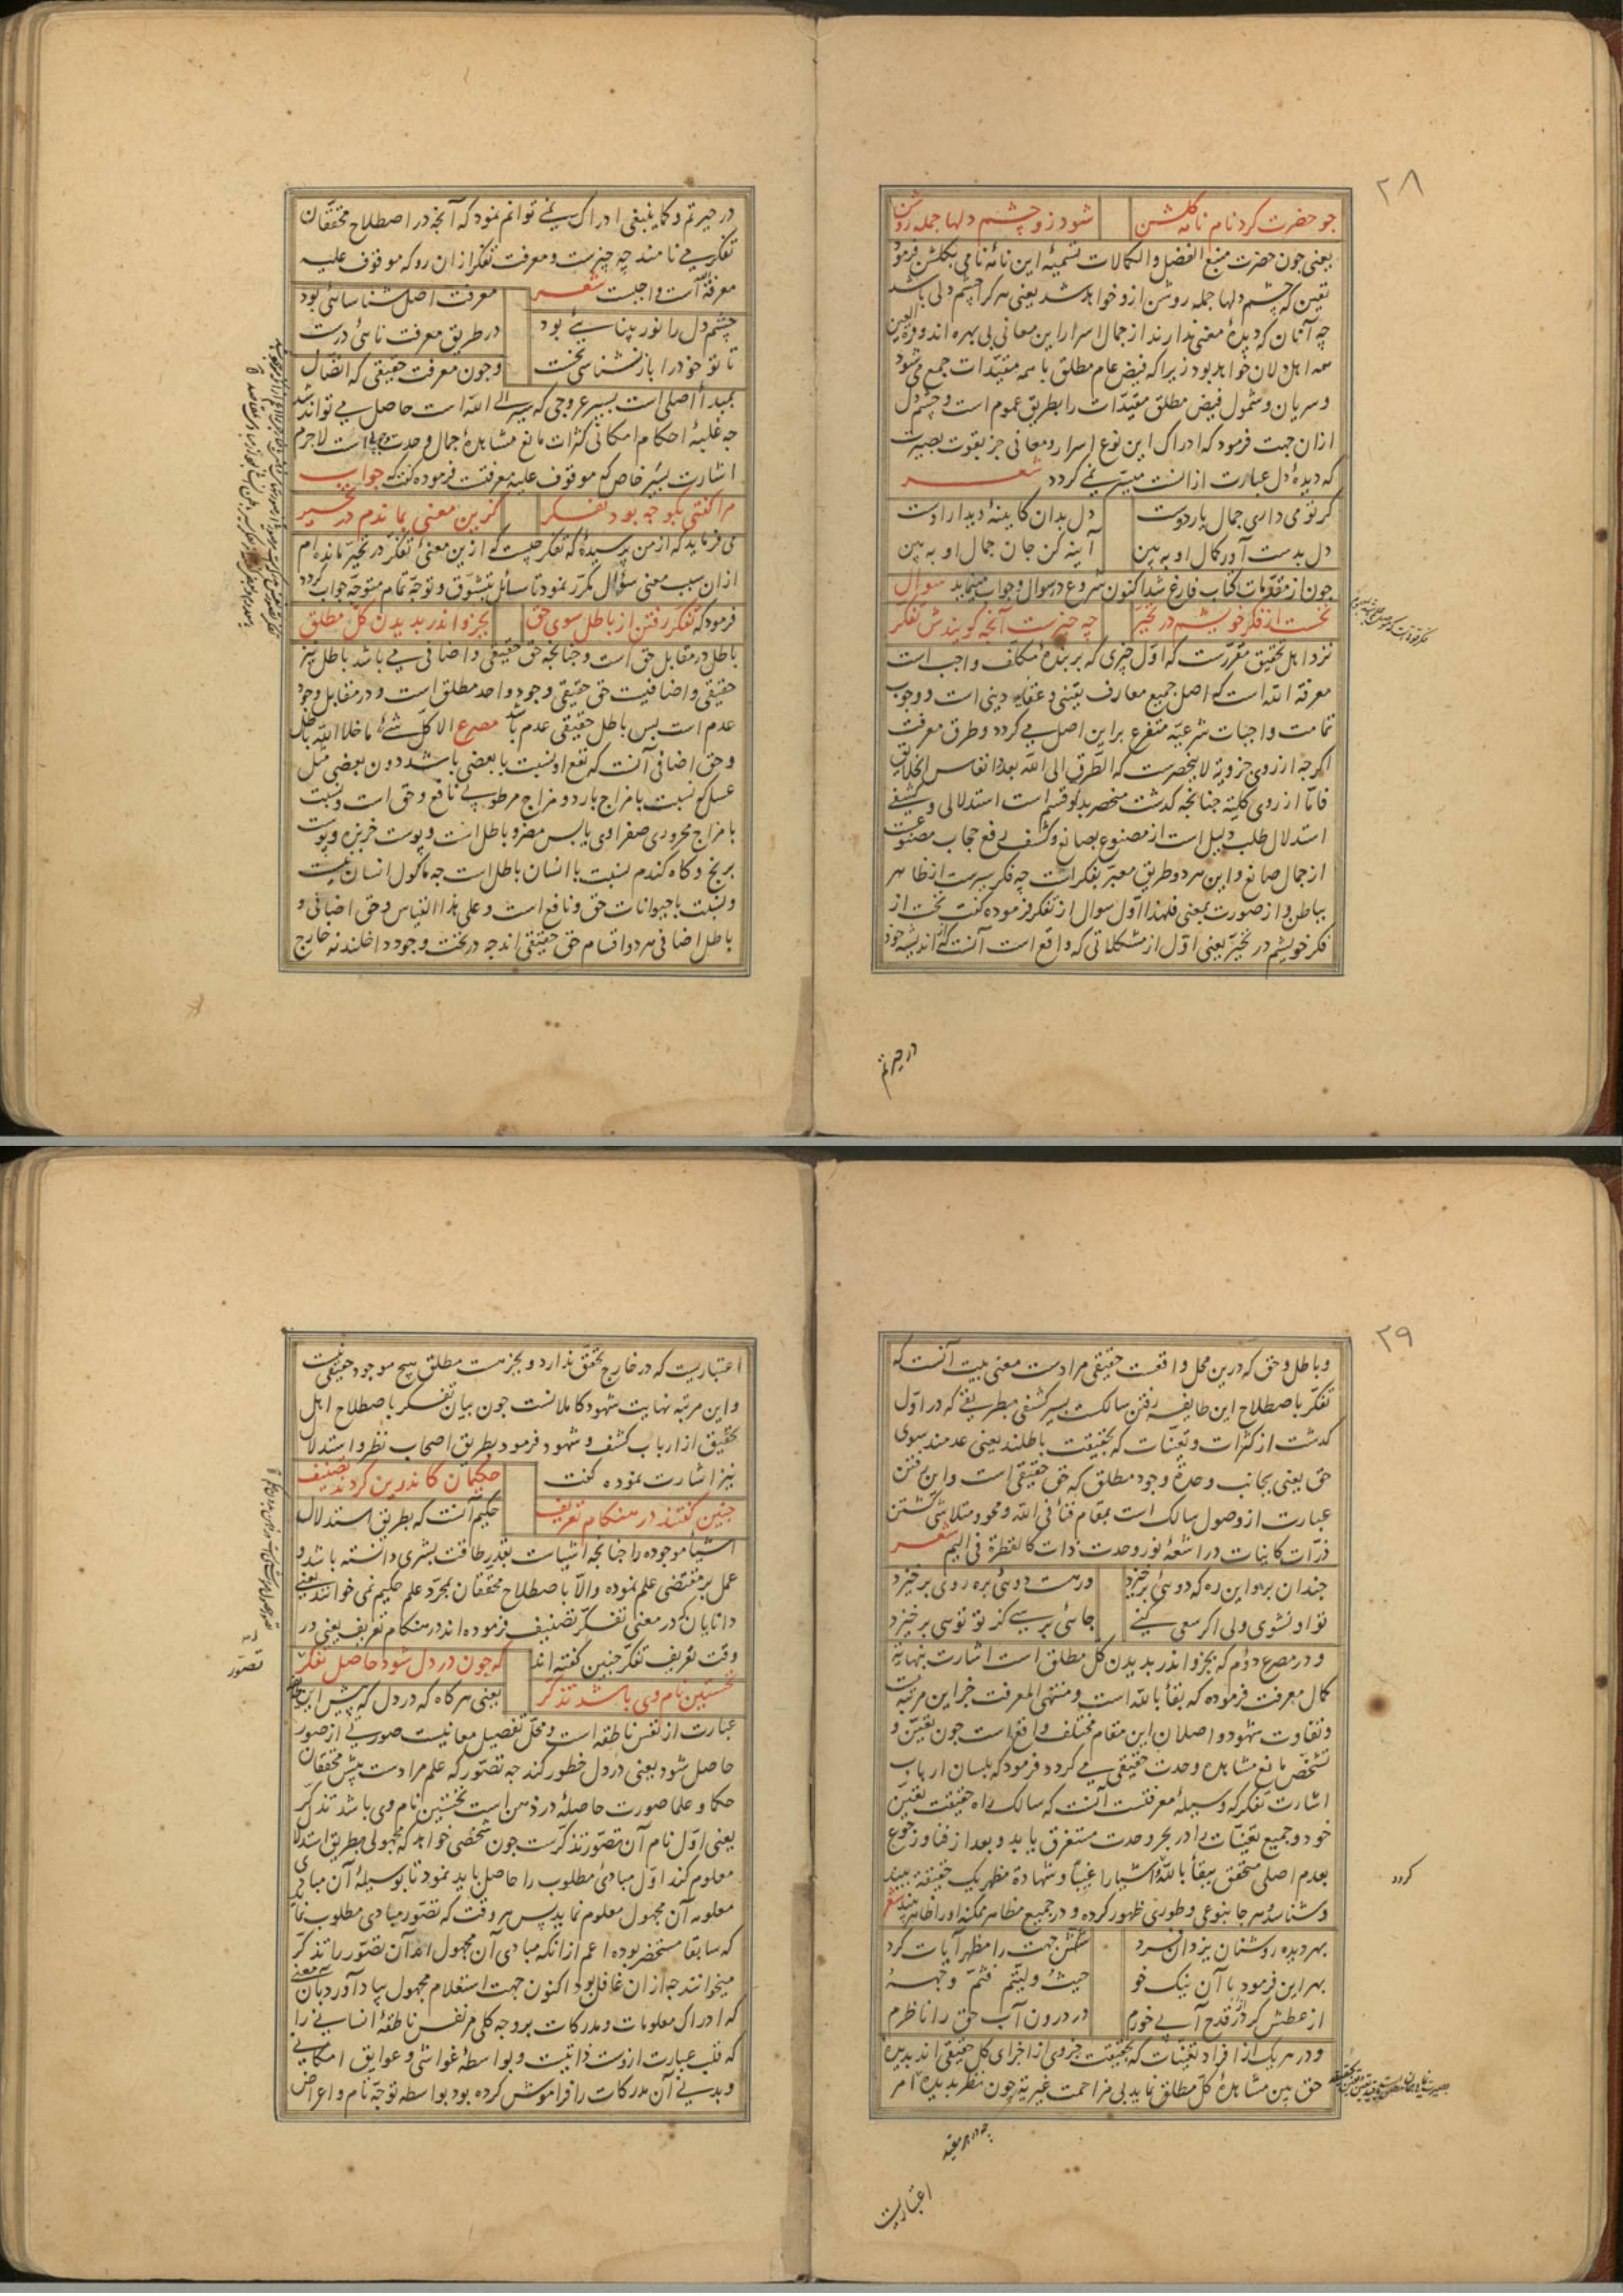 ۲۸
چو حضرت کرد نام نامه گلشن شود زو چشم دلها جمله روشن
یعنی چون حضرت منبع الفضل والکمالات تسمیهٔ این نامهٔ نامی بگلشن فرمود
یقین که چشم دلها جمله روشن ازو خواهد شد یعنی هر کرا چشم دلی باشد
چه آنان که دیدهٔ معنی ندارند از جمال اسرار این معانی بی بهره اند و قرة العین
همه اهل دلان خواهد بود زیرا که فیض عام مطلق با همه مقیدات جمع می شود
و سریان و شمول فیض مطلق مقیدات را بطریق عموم است و چشم دل
ازان جهت فرمود که ادراک این نوع اسرار و معانی جز بقوت بصیرت
که دیدهٔ دل عبارت از انست میسر نمی گردد شعر
گر تو می داری جمال یار دوست دل بدان کایینهٔ دیدار اوست
دل بدست آور کمال او به بین آینه کن جان جمال او به بین
چون از مقدمات کتاب فارغ شد اکنون شروع در سوال و جواب مینماید سوال
نخست از فکر خویشم در تحیر چه چیزست آنچه گویندش تفکر
نزد اهل تحقیق مقررست که اول چیزی که بر بندهٔ مکلف واجب است
معرفة الله است که اصل جمیع معارف یقینی و عقاید دینی است و وجوب
تمامت واجبات شرعیه متفرع براین اصل می گردد و طرق معرفت
اگرچه از روی جزویه لاینحصرست که الطرق الی الله بعدد انفاس الخلایق
فاما از روی کلیه چنانچه گذشت منحصر بدو قسم است استدلالی و کشفی
استدلال طلب دلیل است از مصنوع بصانع و کشف رفع حجاب مصنوعت
از جمال صانع و این هر دو طریق معبر بفکرات چه فکر سیرست از ظاهر
بباطن و از صورت بمعنی فلهذا اول سوال از تفکر فرموده گفت نخست از
فکر خویشم در تحیر یعنی اول از مشکلاتی که واقع است آنست که از اندیشه خود
در حیرتم
در حیرتم و کماینبغی ادراک نمی توانم نمود که آنچه در اصطلاح محققان
تفکر می نامند چه چیزست و معرفت تفکر ازان رو که موقوف علیه
معرفة الله است واجبست شعر معرفت اصل شناسائی بود
چشم دل را نور بینایی بود در طریق معرفت نائی درست
تا تو خود را باز نشناسی نخست و چون معرفت حقیقی که اتصال
بمبدأ اصلی است بسیر عروجی که سیر الی الله است حاصل می تواند شد
چه غلبهٔ احکام امکانی کثرات مانع مشاهدهٔ جمال وحدت وجوبی است لاجرم
اشارت بسیر خاص که موقوف علیه معرفتست فرموده گفت که جواب
مرا گفتی بگو چه بود تفکر کزین معنی بماندم در تحیر
می فرماید که از من پرسیدهٔ که تفکر چیست که ازین معنی تفکر در تحیر مانده ام
ازان سبب معنی سؤال مکرر نمود تا سائل بتشوق و توجه تمام متوجه جواب گردد
فرمود که تفکر رفتن از باطل سوی حق بجزو اندر بدیدن کل مطلق
باطل در مقابل حق است و چنانچه حق حقیقی و اضافی می باشد باطل نیز
حقیقی و اضافیست حق حقیقی وجود واحد مطلق است و در مقابل وجود
عدم است پس باطل حقیقی عدم باشد مصرع الا کل شئ ما خلا الله باطل
و حق اضافی آنست که نفع او نسبت با بعضی باشد دون بعضی مثل
عسل که نسبت با مزاج بارد و مزاج مرطوبی نافع و حق است و نسبت
با مزاج محروری صفراوی یابس مضر و باطل است و پوست خربزه و پوست
برنج و کاه گندم نسبت با انسان باطل است چه مأکول انسان نیست
و نسبت با حیوانات حق و نافع است و علی هذا القیاس و حق اضافی و
باطل اضافی هر دو اقسام حق حقیقی اند چه در تحت وجود داخلند نه خارج
۲۹
و باطل و حق که درین محل واقعست حقیقی مرادست معنی بیت آنست که
تفکر باصطلاح این طایفه رفتن سالکست بسیر کشفی بطریقی که در اول
گذشت از کثرات و تعینات که بحقیقت باطلند یعنی عدمند بسوی
حق یعنی بجانب وحدة وجود مطلق که حق حقیقی است و این رفتن
عبارت از وصول سالک است بمقام فنا فی الله و محو و متلاشی گشتن
ذرات کاینات در اشعهٔ نور وحدت ذات کالقطرة فی الیم شعر
چندان برو این ره که دوئی برخیزد ور هست دوئی بره روی برخیزد
تو او نشوی ولی اگر سعی کنی جائی برسی کز تو توئی برخیزد
و در مصرع دوم که بجزو اندر بدیدن کل مطلق است اشارت بنهایة
کمال معرفت فرموده که بقا بالله است و منتهی المعرفت جز این مرتبه نیست
و تفاوت شهود واصلان این مقام مختلف واقع است چون تعین و
تشخص مانع مشاهده وحدت حقیقی می گردد فرمود که بلسان ارباب
اشارت تفکر که وسیلهٔ معرفتست آنست که سالک راه حقیقت تعین
خود و جمیع تعینات را در بحر وحدت مستغرق یابد و بعد از فنا و رجوع
بعدم اصلی متحقق ببقا بالله اشیا را غیباً و شهادة مظهر یک حقیقة بیند
و شناسد که هر جا بنوعی و طوری ظهور کرده و در جمیع مظاهر ممکنه او را ظاهر بیند شعر
گردد
بهر دیده روشنان یزدان فرد شش جهت را مظهر آیات کرد
بهر این فرمود با آن نیک خو حیث ولیتم فثم وجهه
از عطش گر در قدح آبی خورم در درون آب حق را ناظرم
و در هر یک از افراد تعینات که بحقیقت جزوی از اجزای کل حقیقی اند بدیده
حق بین مشاهدهٔ کل مطلق نماید بی مزاحمت غیریة چون نظر بدیده ام
اعتباریست
اعتباریست که در خارج تحقق ندارد و بجز هست مطلق هیچ موجود حقیقی نیست
و این مرتبه نهایت شهود کاملانست چون بیان تفکر باصطلاح اهل
تحقیق از ارباب کشف و شهود فرمود بطریق اصحاب نظر و استدلال
نیز اشارت نموده گفت حکیمان کاندرین کردند تصنیف
چنین گفتند در هنگام تعریف حکیم آنست که بطریق استدلال
اشیا موجوده را چنانچه اشیاست بقدر طاقت بشری دانسته باشد و
عمل بر مقتضی علم نموده و الا باصطلاح محققان بمجرد علم حکیم نمی خوانند یعنی
دانایان که در معنی تفکر تصنیف فرموده اند در هنگام تعریف یعنی در
وقت تعریف تفکر چنین گفته اند که چون در دل شود حاصل تفکر
تصور
نخستین نام وی باشد تذکر یعنی هر گاه که در دل که پیش این
عبارت از نفس ناطقه است و محل تفصیل معانیست صورتی از صور
حاصل شود یعنی در دل خطور کند چه تصور که علم مرادست پیش محققان
حکما و علما صورت حاصله در ذهن است نخستین نام وی باشد تذکر
یعنی اول نام آن تصور تذکرست چون شخصی خواهد که مجهولی بطریق استدلال
معلوم کند اول مبادی مطلوب را حاصل باید نمود تا بوسیلهٔ آن مبادی
معلومه آن مجهول معلوم نماید پس هر وقت که تصور مبادی مطلوب نماید
که سابقا مستحضر بوده اعم از آنکه مبادی آن مجهول آن تصور را تذکر
میخوانند چه ازان غافل بود اکنون جهت استعلام مجهول بیاد آورد بآن معنی
که ادراک معلومات و مدرکات بر وجه کلی مر نفس ناطقهٔ انسانی را
که قلب عبارت ازوست ذاتیست و بواسطهٔ غواشی و عوایق امکانی
و بدنی آن مدرکات را فراموش کرده بود بواسطه توجه تام و اعراض